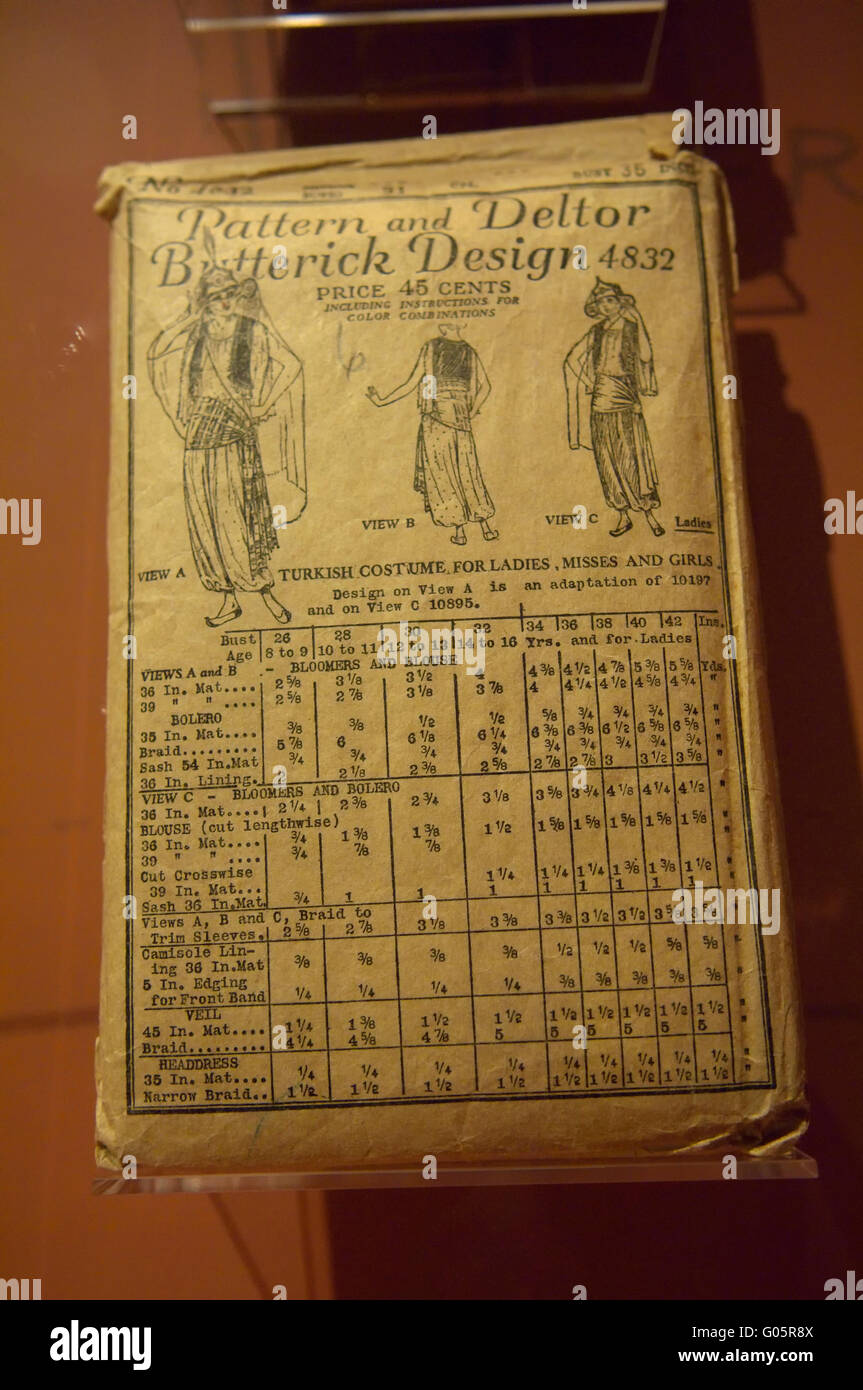 No 4832 21 BUST 35
Pattern and Deltor
Butterick Design 4832
PRICE 45 CENTS
INCLUDING INSTRUCTIONS FOR
COLOR COMBINATIONS
VIEW A
VIEW B
VIEW C
Ladies
TURKISH COSTUME, FOR LADIES, MISSES AND GIRLS.
Design on View A is an adaptation of 10197
and on View C 10895.
Bust 26 28 30 32 34 36 38 40 42 Ins.
Age 8 to 9 10 to 11 12 to 13 14 to 16 Yrs. and for Ladies
VIEWS A and B - BLOOMERS AND BLOUSE
36 In. Mat.... 2 5/8 3 1/8 3 1/2 4 4 3/8 4 1/2 4 7/8 5 3/8 5 5/8 Yds.
39 " " .... 2 5/8 2 7/8 3 1/8 3 7/8 4 4 1/4 4 1/2 4 5/8 4 3/4 "
BOLERO
35 In. Mat.... 3/8 3/8 1/2 1/2 5/8 3/4 3/4 3/4 3/4 "
Braid......... 5 7/8 6 6 1/8 6 1/4 6 3/8 6 3/8 6 1/2 6 5/8 6 5/8 "
Sash 54 In.Mat 3/4 3/4 3/4 3/4 3/4 3/4 3/4 3/4 3/4 "
36 In. Lining. 2 2 1/8 2 3/8 2 5/8 2 7/8 2 7/8 3 3 1/2 3 5/8 "
VIEW C - BLOOMERS AND BOLERO
36 In. Mat.... 2 1/4 2 3/8 2 3/4 3 1/8 3 5/8 3 3/4 4 1/8 4 1/4 4 1/2 "
BLOUSE (cut lengthwise)
36 In. Mat.... 3/4 1 3/8 1 3/8 1 1/2 1 5/8 1 5/8 1 5/8 1 5/8 1 5/8 "
39 " " .... 3/4 7/8 7/8
Cut Crosswise
39 In. Mat... 1 1/4 1 1/4 1 1/4 1 3/8 1 3/8 1 1/2 "
Sash 36 In.Mat. 3/4 1 1 1 1 1 1 1 1 "
Views A, B and C, Braid to
Trim Sleeves. 2 5/8 2 7/8 3 1/8 3 3/8 3 3/8 3 1/2 3 1/2 3 5/8 3 5/8 "
Camisole Lin-
ing 36 In.Mat 3/8 3/8 3/8 3/8 1/2 1/2 1/2 5/8 5/8 "
5 In. Edging
for Front Band 1/4 1/4 1/4 1/4 3/8 3/8 3/8 3/8 3/8 "
VEIL
45 In. Mat.... 1 1/4 1 3/8 1 1/2 1 1/2 1 1/2 1 1/2 1 1/2 1 1/2 1 1/2 "
Braid......... 4 1/4 4 5/8 4 7/8 5 5 5 5 5 5 "
HEADDRESS
35 In. Mat.... 1/4 1/4 1/4 1/4 1/4 1/4 1/4 1/4 1/4 "
Narrow Braid.. 1 1/2 1 1/2 1 1/2 1 1/2 1 1/2 1 1/2 1 1/2 1 1/2 1 1/2 "
R
alamy
Image ID: G05R8X
www.alamy.com